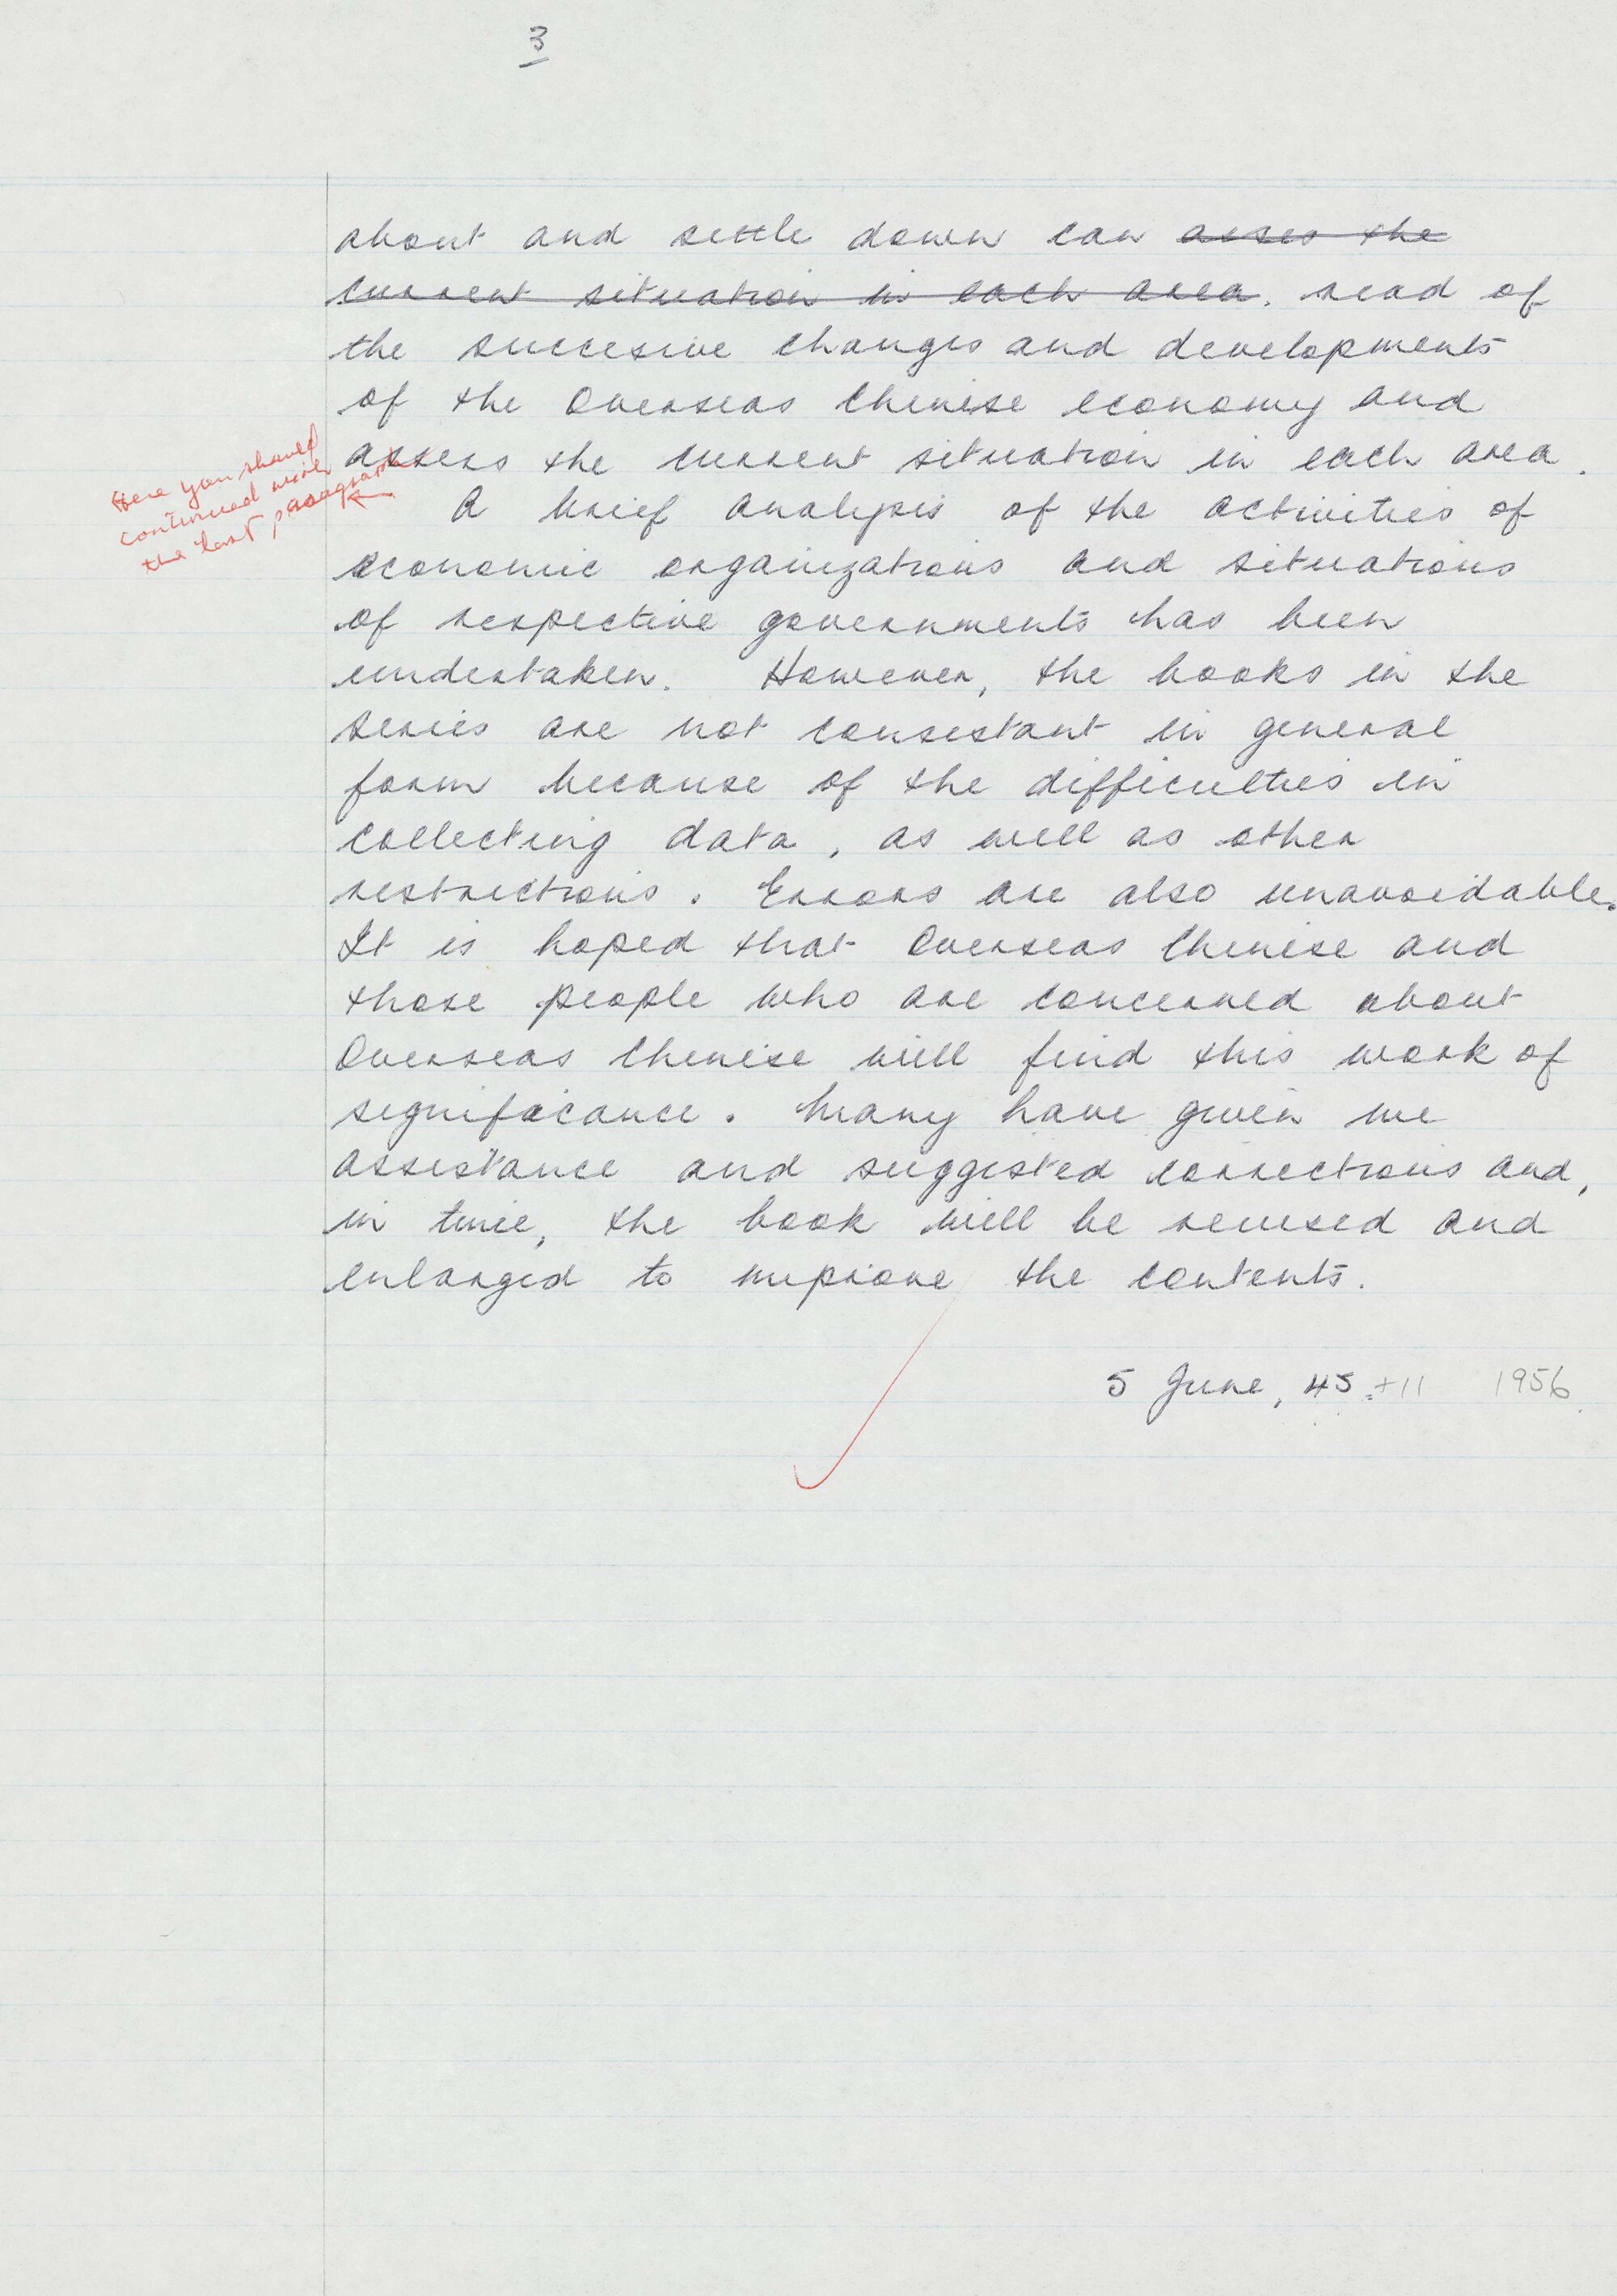 3
about and settle down can asses the
current situation in each area. read of
the succesive changes and developments
of the Overseas Chinese economy and
assess the current situation in each area.
Here you should
continued with
the last paragraph
A brief analysis of the activities of
economic organizations and situations
of respective governments has been
undertaken. However, the books in the
series are not consistant in general
form because of the difficulties in
collecting data, as well as other
restrictions. Errors are also unavoidable.
It is hoped that Overseas Chinese and
those people who are concerned about
Overseas Chinese will find this work of
significance. Many have given me
assistance and suggested corrections and,
in time, the book will be revised and
enlarged to improve the contents.
5 June, 45 +11 1956